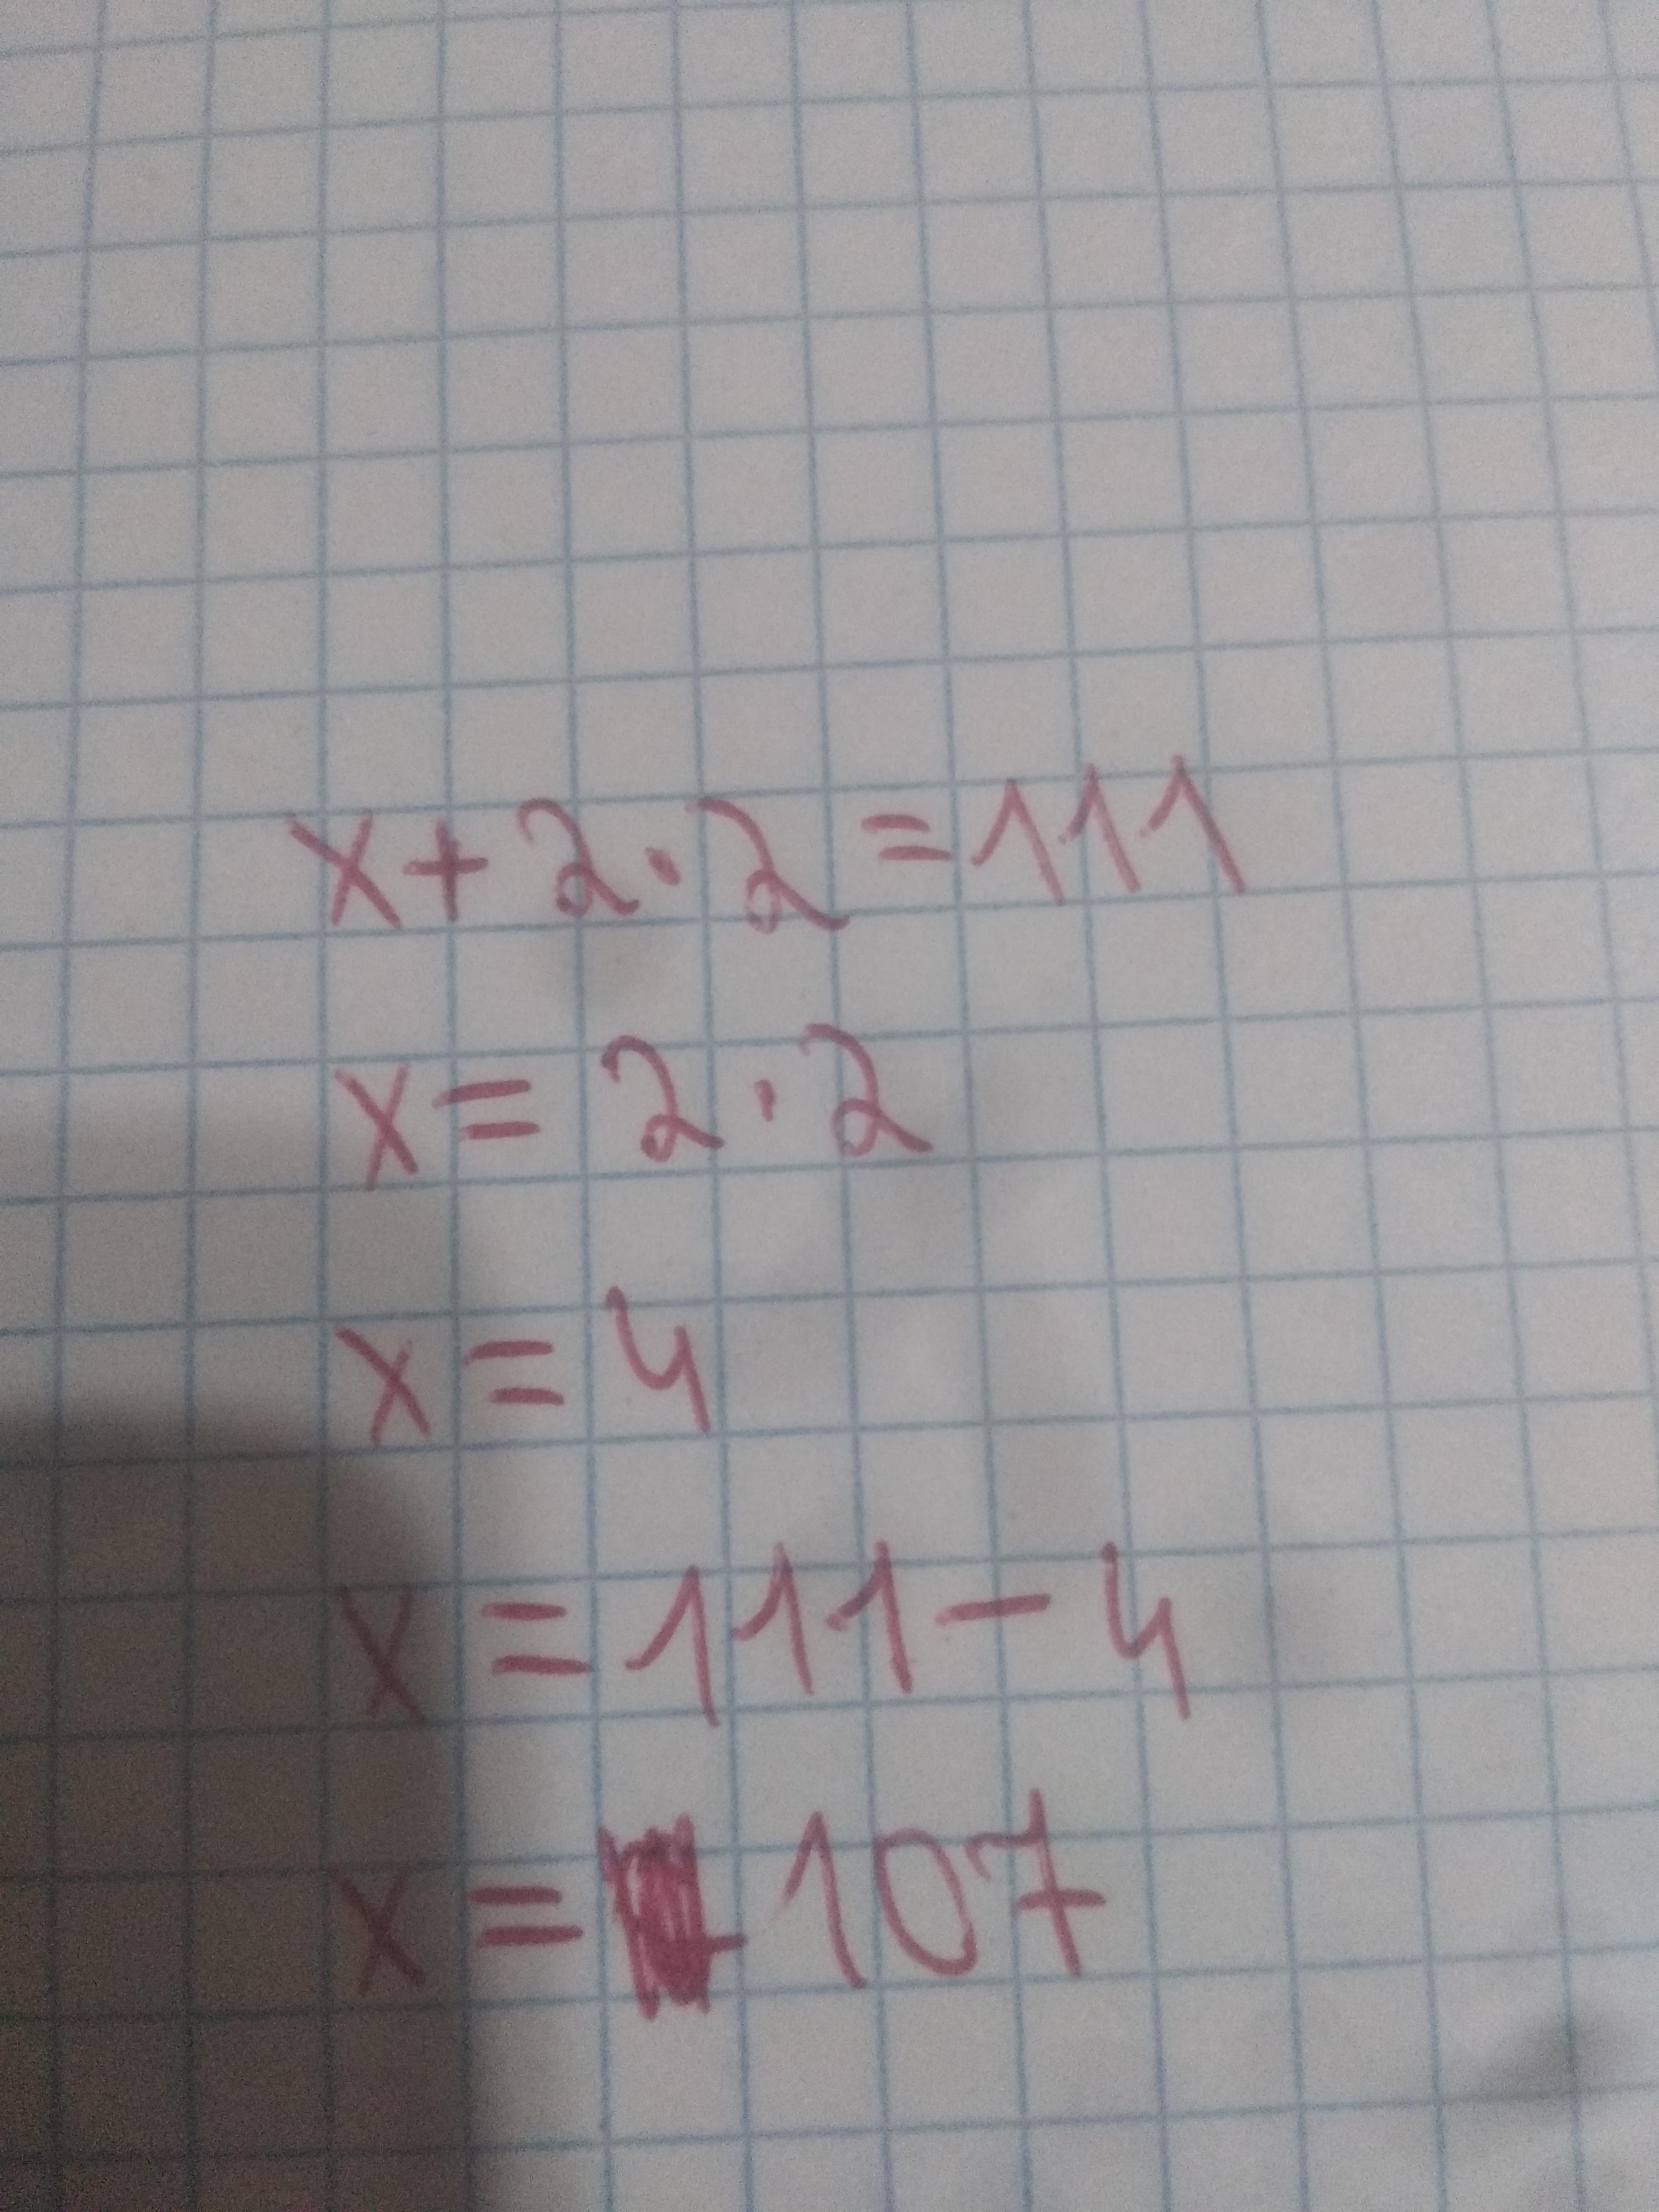 x+2·2=111
x=2·2
x=4
x=111-4
x=107